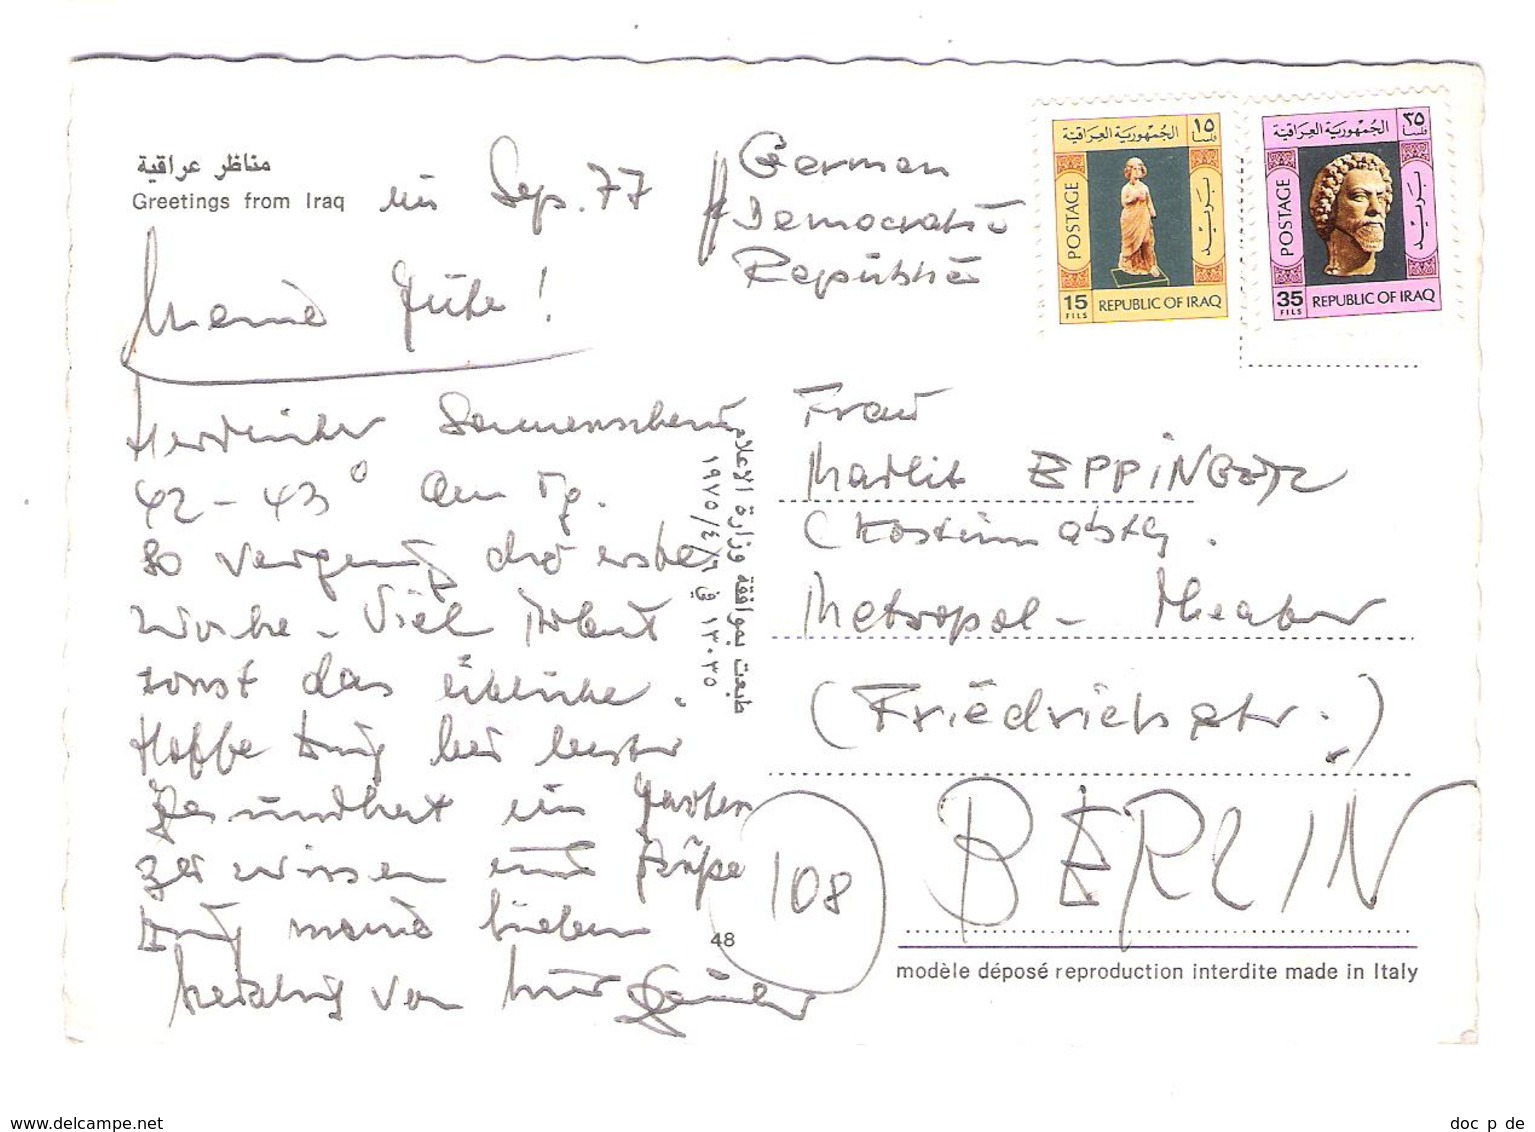 مناظر عراقية
Greetings from Iraq
im Sep. 77
German
Democratic
Republic
الجمهورية العراقية
١٥
فلسا
POSTAGE
بريد
15
FILS
REPUBLIC OF IRAQ
الجمهورية العراقية
٣٥
فلسا
POSTAGE
بريد
35
FILS
REPUBLIC OF IRAQ
Meine Gute!
Herrlicher Sonnenschein
42 - 43° am Tg.
So verging die erste
Woche - Viel Arbeit
sonst das übliche.
Hoffe Dich bei bester
Gesundheit im Garten
zu wissen und Grüße
Dich meine lieben
herzlich von
طبعت بموافقة وزارة الاعلام
١٣٠٣٥ في ١٩٧٥/٤/٦
Frau
Marlit EPPINGER
(Kostümabtlg.
Metropol - Theater
(Friedrichstr.)
BERLIN
108
48
modèle déposé reproduction interdite made in Italy
www.delcampe.net
doc_p_de